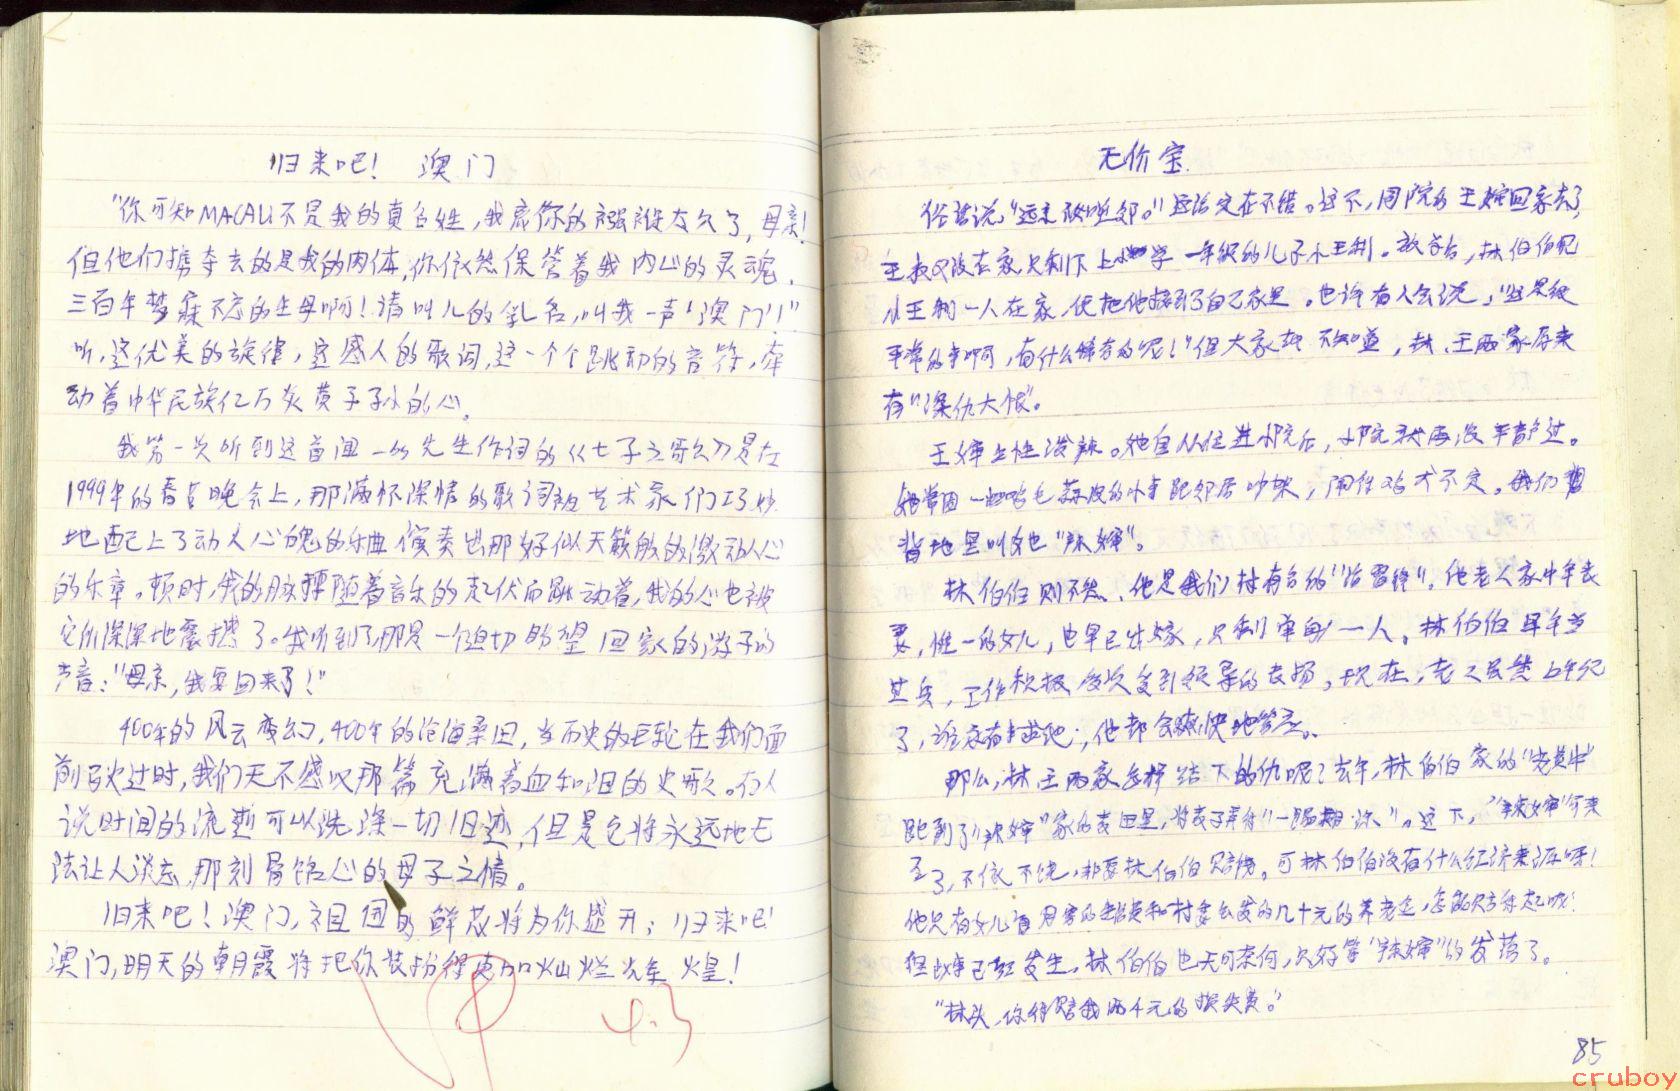 归来吧！ 澳门
"你可知MACAU不是我的真名姓，我离你的襁褓太久了，母亲！
但他们掳夺去的是我的肉体，你依然保管着我内心的灵魂，
三百年梦寐不忘的生母啊！请叫儿的乳名，叫我一声'澳门'！"
听，这优美的旋律，这感人的歌词，这一个个跳动的音符，牵
动着中华民族亿万炎黄子子孙的心。
我第一次听到这首闻一多先生作词的《七子之歌》是在
1999年的春节晚会上，那满怀深情的歌词被艺术家们巧妙
地配上了动人心魄的乐曲演奏出那好似天籁般的激动人心
的乐章。顿时，我的脉搏随着音乐的起伏而跳动着，我的心也被
它所深深地震撼了。我听到了那是一个迫切盼望回家的游子的
声音："母亲，我要回来了！"
400年的风云变幻，400年的沧海桑田，当历史的巨轮在我们面
前驶过时，我们无不感叹那篇充满着血和泪的史歌。有人
说时间的流逝可以洗涤一切旧迹，但是它将永远地无
法让人淡忘，那刻骨铭心的母子之情。
归来吧！澳门，祖国的鲜花将为你盛开；归来吧！
澳门，明天的朝霞将把你装扮得更加灿烂辉煌！
4.3
无价宝
俗话说，"远亲不如近邻。"这话实在不错。这下，同院的王婶回家去了，
王叔又没在家，只剩下上小学一年级的儿子小王利。放学后，林伯伯见
小王利一人在家，便把他接到了自己家里。也许有人会说，"这是很
平常的事啊，有什么稀奇的呢！"但大家却不知道，林、王两家原来
有"深仇大恨"。
王婶生性泼辣。她自从住进小院后，小院就再没平静过。
她常因一些鸡毛蒜皮的小事跟邻居吵架，闹得鸡犬不定。我们
背地里叫她"辣婶"。
林伯伯则不然，他是我们村有名的"活雷锋"。他老人家中年丧
妻，惟一的女儿，也早已出嫁，只剩单身一人。林伯伯早年当
过兵，工作积极，多次受到领导的表扬，现在，老人虽然上年纪
了，谁家有事找他，他都会爽快地答应。
那么，林王两家怎样结下的仇呢？去年，林伯伯家的"老黄牛"
跑到了"辣婶"家的麦田里，将麦子弄得"一塌糊涂"。这下，"辣婶"可来
了，不依不饶，非要林伯伯赔钱。可林伯伯没有什么经济来源呀！
他只有女儿每月寄的生活费和村委会发的几十元的养老金，怎能赔得起呢？
但事已经发生，林伯伯也无可奈何，只好等"辣婶"的发落了。
"林头，你得赔我两千元的损失费。"
85
cruboy